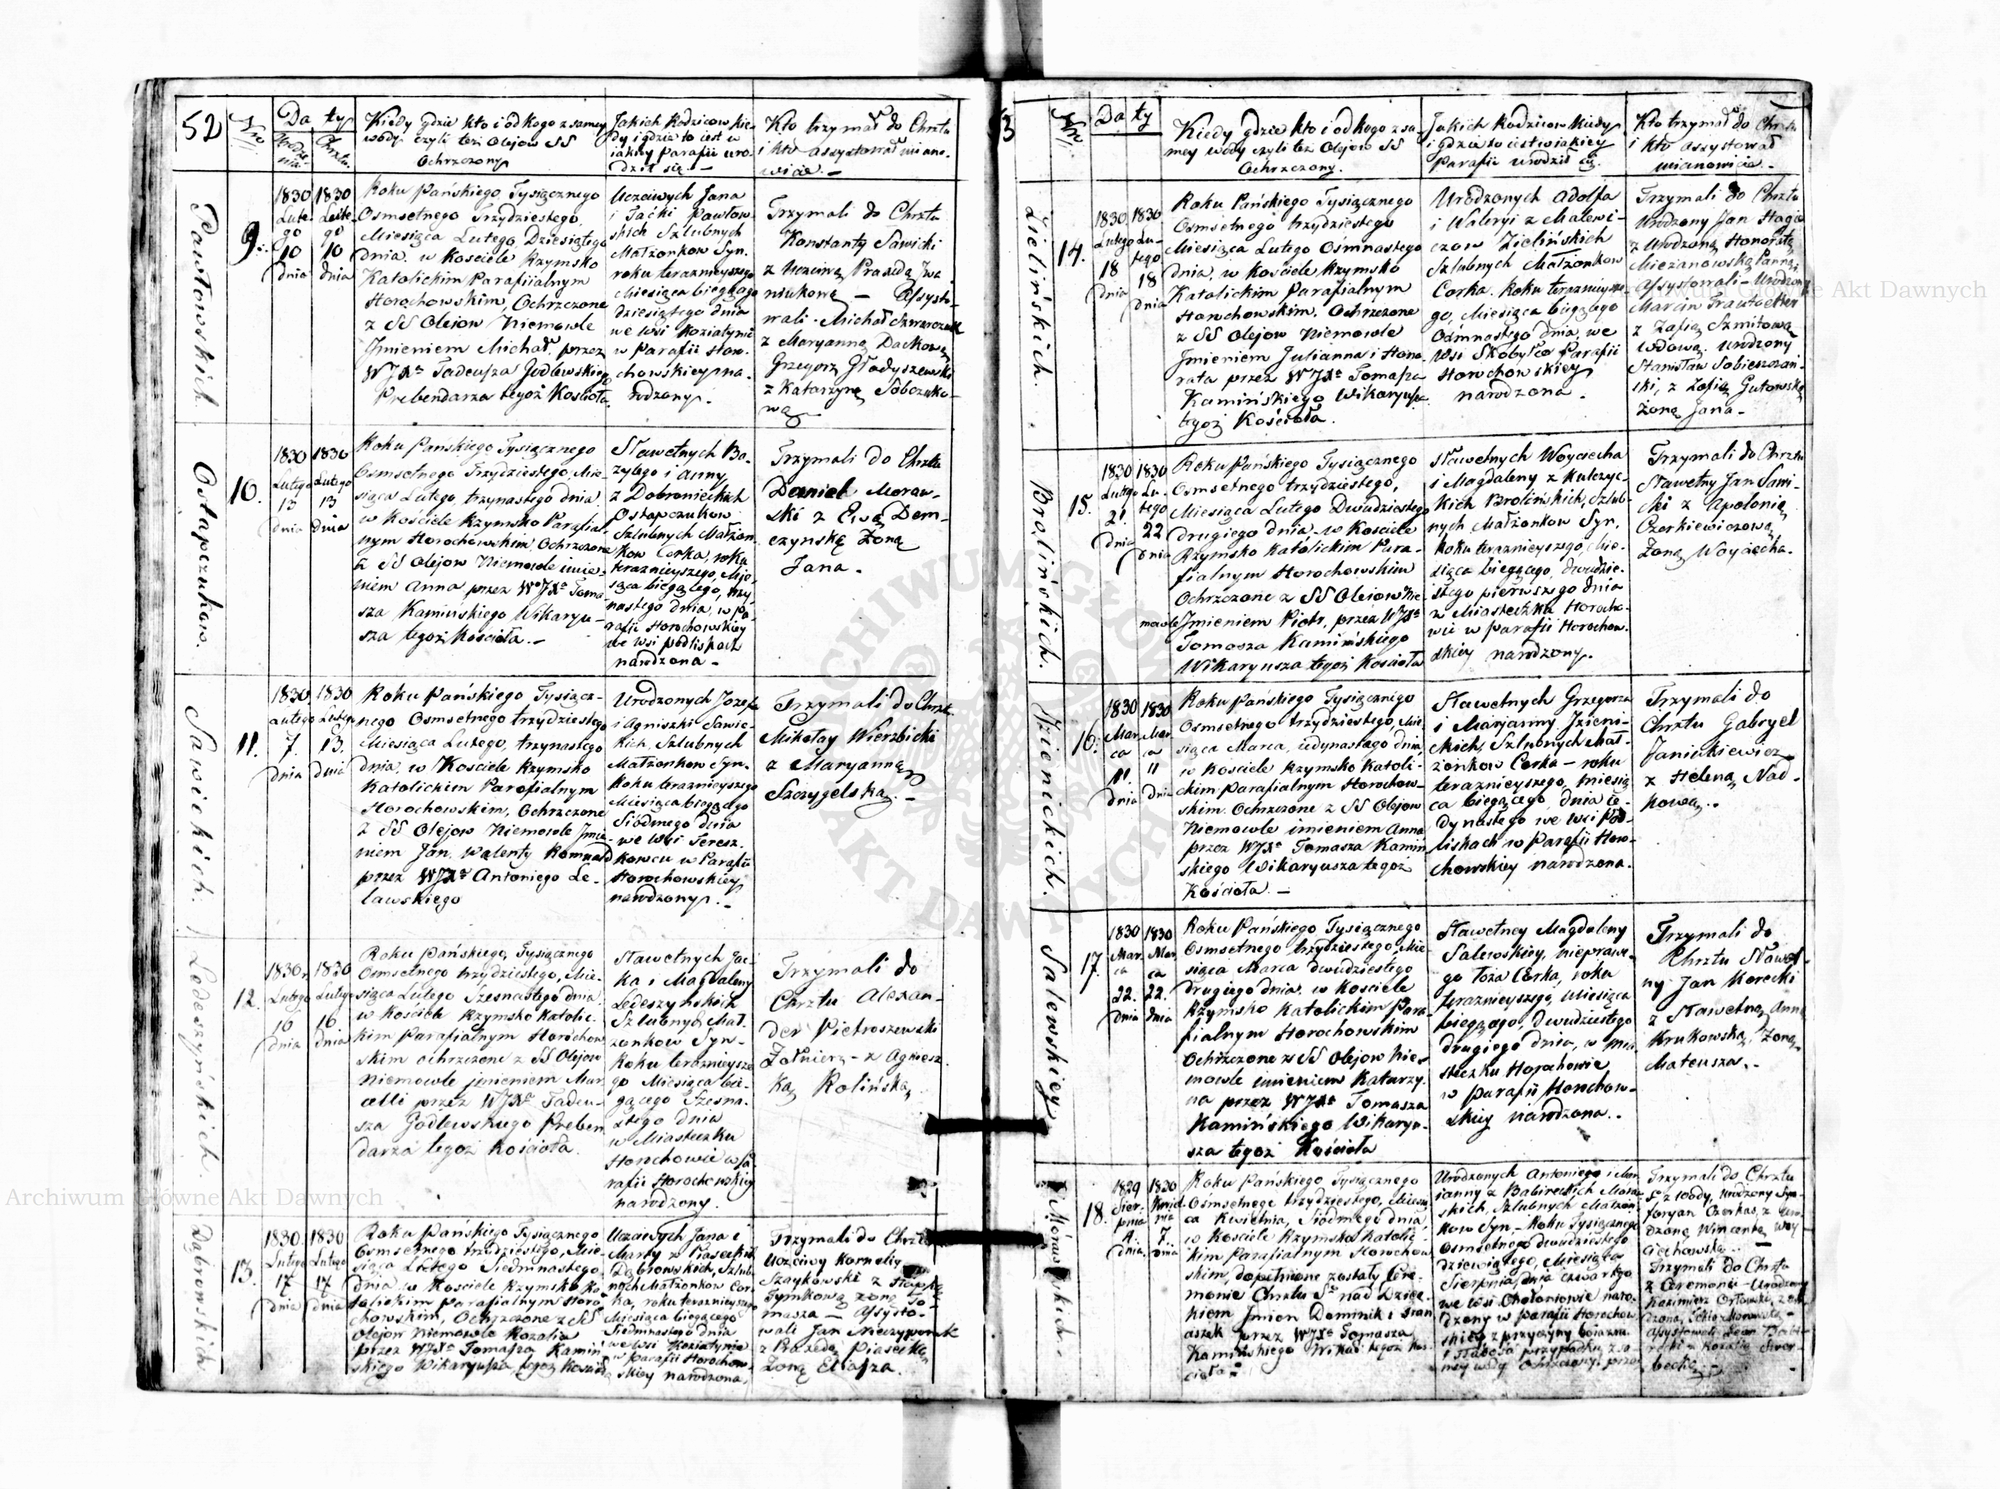 52
Nro
Da ty
Urodze-
nia.
Chrztu.
Kiedy gdzie kto i od kogo z samey
wody czyli też Olejow SS
Ochrzczony
Jakich Rodzicow kie-
dy i gdzie to iest w
iakiey Parafii uro-
dził się.—
Kto trzymał do Chrztu
i kto assystował miano-
wicie.—
Pawłowskich.
9.
1830
Lute-
go
10
dnia
1830
Lute-
go
10
dnia
Roku Pańskiego Tysiącznego
Osmsetnego Trzydziestego,
Miesiąca Lutego, Dziesiątego
dnia. w Kosciele Rzymsko
Katolickim Parafiialnym
Horochowskim, Ochrzczone
z SS Olejow Niemowle
Jmieniem Michał. przez
WJXa Tadeusza Godlewskiego
Prebendarza tegoż Kościoła.
Uczciwych Jana
i Taćki Pawłow-
skich Szlubnych
Małżonkow Syn.
roku teraznieyszego
Miesiąca bieżącego
dziesiątego dnia
we Wsi Koziatynie
w Parafii Horo-
chowskiey na-
rodzony.
Trzymali do Chrztu
Konstanty Sawicki
z Uczciwą Praxedą Iwa
niukową — Assysto-
wali. Michał
z Maryanną Dackową
Grzegorz Gładyszewski
z Katarzyną Sobczuko-
wą
Ostapczukow.
10.
1830
Lutego
13
dnia
1830
Lutego
13
dnia
Roku Pańskiego Tysiącznego
Osmsetnego Trzydziestego, Mie-
siąca Lutego, trzynastego dnia
w Kosciele Rzymsko Parafial-
nym Horochowskim Ochrzczone
z SS Olejow Niemowle imie-
niem Anna przez WJXa Toma-
sza Kamińskiego Wikaryu-
sza tegoż Kościoła.—
Sławetnych Ba-
zylego i Anny
z Dobronieckich
Ostapczukow
Szlubnych Małżon-
kow Corka, roku
teraznieyszego, Mie-
siąca bieżącego, trzy-
nastego dnia, w Pa-
rafii Horochowskiey
we wsi podliskach
narodzona—
Trzymali do Chrztu
Daniel Moraw-
ski z Ewą Dem-
czynską Żoną
Jana.
Sawickich.
11.
1830
Lutego
7.
dnia
1830
Lutego
13.
dnia
Roku Pańskiego Tysiącz-
nego Osmsetnego trzydziestego
Miesiąca Lutego, trzynastego
dnia. w Kosciele Rzymsko
Katolickim Parafialnym
Horochowskim, Ochrzczone
z SS Olejow Niemowle Jmie-
niem Jan Walenty Romuald
przez WJXa Antoniego Le-
lawskiego
Urodzonych Jozefa
i Agniszki Sawic-
kich, Szlubnych
Małżonkow Syn.
Roku teraznieyszego
Miesiąca bieżącego
Siódmego dnia
we Wsi Teresz-
kowcu w Parafii
Horochowskiey
narodzony.—
Trzymali do Chrztu
Mikołay Wierzbicki
z Maryanną
Szczygelską.—
Ledeszyńskich.
12.
1830.
Lutego
16
dnia
1830
Lutego
16.
dnia
Roku Pańskiego, Tysiącznego
Osmsetnego trzydziestego, Mie-
siąca Lutego Szesnastego dnia
w Kosciele Rzymsko Katolic-
kim Parafialnym Horochow-
skim ochrzczone z SS Olejow
Niemowle jmieniem Mar-
celli przez WJXa Tadeu-
sza Godlewskiego Preben
darza tegoż Kościoła.
Sławetnych Jac-
ka i Magdaleny
Ledeszyńskich
Szlubnych Mał-
żonkow Syn—
Roku teraznieysze-
go Miesiąca bie-
żącego Szesna-
stego dnia
w Miasteczku
Horochowie w Pa-
rafii Horochowskiey
narodzony.
Trzymali do
Chrztu Alexan-
der Pietroszewski
Żołnierz— z Agniesz
ką Rolińską.
Dąbrowskich.
13.
1830
Lutego
17
dnia
1830
Lutego
17
dnia
Roku Pańskiego Tysiącznego
Osmsetnego trzydziestego, Mie-
siąca Lutego Siedmnastego
dnia w Kosciele Rzymsko Ka-
tolickim Parafialnym Horo-
chowskim, Ochrzczone z SS
Olejow Niemowle Rozalia
przez WJXa Tomasza Kamiń
skiego Wikaryusza tegoż Kościoła
Uczciwych Jana i
Marty z Piaseckich
Dąbrowskich, Szlub-
nych Małżonkow Cor-
ka, roku teraznieyszego
Miesiąca bieżącego
Siedmnastego dnia
we Wsi Koziatynie
w Parafii Horochow-
skiey narodzona.
Trzymali do Chrztu
Uczciwy Korneliy
Szaykowski z
Tymkową żoną To-
masza — Assysto-
wali Jan
z Praxedą Piasecką
Żoną Eliasza.
53
Nro
Da ty
Kiedy gdzie kto i od kogo z sa-
mey wody czyli też Olejow SS
Ochrzczony.
Jakich Rodzicow kiedy
i gdzie to iest w iakiey
Parafii urodził się.
Kto trzymał do Chrztu
i kto assystował
mianowicie.—
Zielińskich.
14.
1830
Lutego
18
dnia
1830
Lu-
tego
18
dnia
Roku Pańskiego Tysiącznego
Osmsetnego trzydziestego
Miesiąca Lutego Osmnastego
dnia. w Kosciele Rzymsko
Katolickim Parafialnym
Horochowskim. Ochrzczone
z SS Olejow Niemowle
Jmieniem Julianna i Hono-
rata przez WJXa Tomasza
Kamińskiego Wikaryusza
tegoż Kościoła.
Urodzonych Adolfa
i Waleryi z Malewi-
czow Zielińskich
Szlubnych Małżonkow
Corka. Roku teraznieysze
go, Miesiąca bieżącego
Osmnastego dnia, we
Wsi Skobyłce Parafii
Horochowskiey
narodzona.
Trzymali do Chrztu
Urodzony Jan
z Urodzoną Honoratą
Mieżanowską Panną,
assystowali— Urodzony
Marcin
z Zofią Szmitową
wdową. urodzony
Stanisław Sobieszczań-
ski, z Zofią Gutowską
żoną Jana—
Brolińskich.
15.
1830
Lutego
21.
dnia
1830
Lu-
tego
22
dnia
Roku Pańskiego Tysiącznego
Osmsetnego trzydziestego,
Miesiąca Lutego Dwudziestego
drugiego dnia w Kosciele
Rzymsko Katolickim Para-
fialnym Horochowskim
Ochrzczone z SS Olejow Nie-
mowle Jmieniem Piotr, przez WJXa
Tomasza Kamińskiego
Wikaryusza tegoż Kościoła
Sławetnych Woyciecha
i Magdaleny z Kulczyc-
kich Brolińskich, Szlub-
nych Małżonkow Syn,
Roku teraznieyszego, Mie-
siąca bieżącego, dwudzie-
stego pierwszego dnia
w Miasteczku Horocho-
wie w Parafii Horochow-
skiey narodzony.
Trzymali do Chrztu
Sławetny Jan Sawi-
cki z Apolonią
Czerkiewiczową
Żoną Woyciecha.
Izienickich.
16.
1830
Mar-
ca
11.
dnia
1830
Mar-
ca
11
dnia
Roku Pańskiego Tysiącznego
Osmsetnego trzydziestego, Mie-
siąca Marca, iedynastego dnia,
w Kosciele Rzymsko Katolic-
kim parafialnym Horochow-
skim. Ochrzczone z SS Olejow
Niemowle imieniem Anna
przez WJXa Tomasza Kamiń
skiego Wikaryusza tegoż
Kościoła.—
Sławetnych Grzegorza
i Maryanny Izieni-
ckich, Szlubnych Mał-
żonkow Corka— roku
teraznieyszego, miesią
ca bieżącego, dnia ie-
dynastego we wsi Pod-
liskach w Parafii Horo-
chowskiey narodzona.
Trzymali do
Chrztu Gabryel
Janickiewicz
z Heleną Nad-
kową..
Salewskiey.
17.
1830
Mar-
ca
22.
dnia
1830
Mar-
ca
22.
dnia
Roku Pańskiego Tysiącznego
Osmsetnego trzydziestego, Mie-
siąca Marca dwudziestego
drugiego dnia. w Kosciele
Rzymsko Katolickim Para-
fialnym Horochowskim
Ochrzczone z SS Olejow Nie-
mowle imieniem Katarzy-
na przez WJXa Tomasza
Kamińskiego Wikaryu-
sza tegoż Kościoła
Sławetney Magdaleny
Salewskiey, nieprawe-
go łoża Corka, roku
teraznieyszego, Miesiąca
bieżącego, Dwudziestego
drugiego dnia, w Mia-
steczku Horochowie
w Parafii Horochow-
skiey narodzona..
Trzymali do
Chrztu Sławet-
ny Jan Morecki
z Sławetną Anną
Krukowską, Żoną
Mateusza..
18.
1829
Sier-
pnia
4.
dnia.
1830
Kwiet-
nia
7.
dnia
Roku Pańskiego Tysiącznego
Osmsetnego trzydziestego, Miesią
ca Kwietnia, Siódmego dnia,
w Kosciele Rzymsko Katolic-
kim Parafialnym Horochow
skim, dopełnione zostały Cere-
monie Chrztu Sgo nad Dziec-
kiem Jmion Dominik i Fran
ciszek przez WJXa Tomasza
Kamińskiego Wikar. tegoż Koś
cioła.
Urodzonych Antoniego i Mar-
ianny z Babireckich Moraw-
skich, Szlubnych Małżon-
kow Syn— Roku Tysiącznego
Osmsetnego dwudziestego
dziewiątego, Miesiąca
Sierpnia, dnia czwartego
we Wsi Chołoniowie naro-
dzony w Parafii Horochow
skiey z przyczyny
i słabości przypadku z sa-
mey wody Ochrzczony. przez
Trzymali do Chrztu
z wody, urodzony Sym-
foryan Czerkas, z Uro-
dzoną Wincentą Woy
ciechowską..
Trzymali do Chrztu
z Ceremonii— Urodzony
Kazimierz Orłowski, z
Archiwum Główne Akt Dawnych
Archiwum Główne Akt Dawnych
ARCHIWUM GŁÓWNE
AKT DAWNYCH